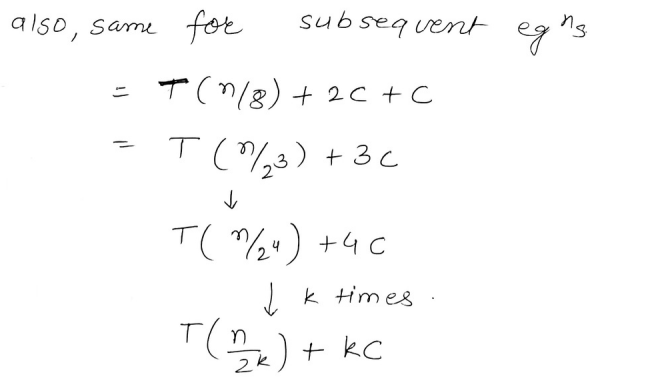 also, same for subsequent eqⁿs
= T(n/8) + 2C + C
= T(n/2³) + 3C
↓
T(n/2⁴) + 4C
↓ k times.
T(n/2ᵏ) + kC